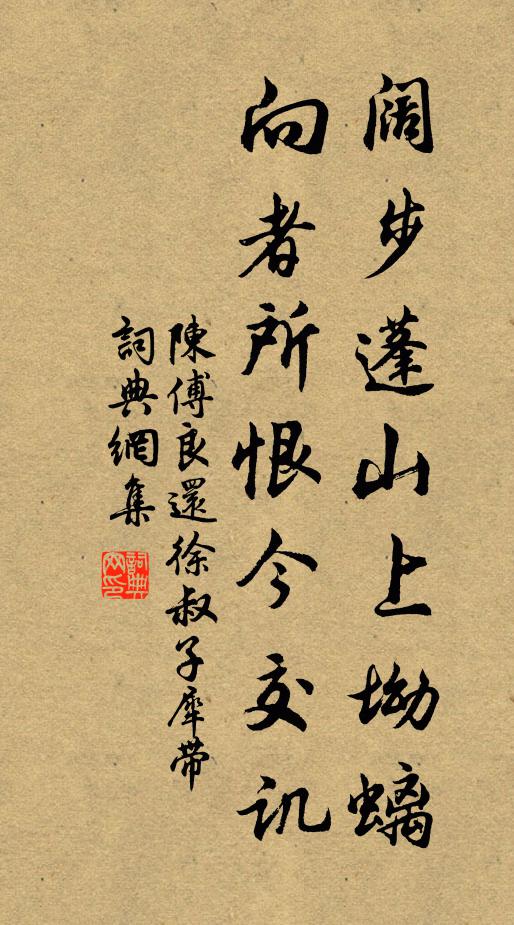 阔步蓬山上坳螭
向者所恨今交讥
陳傅良還徐叔子犀带
詞典網集
詞典网印